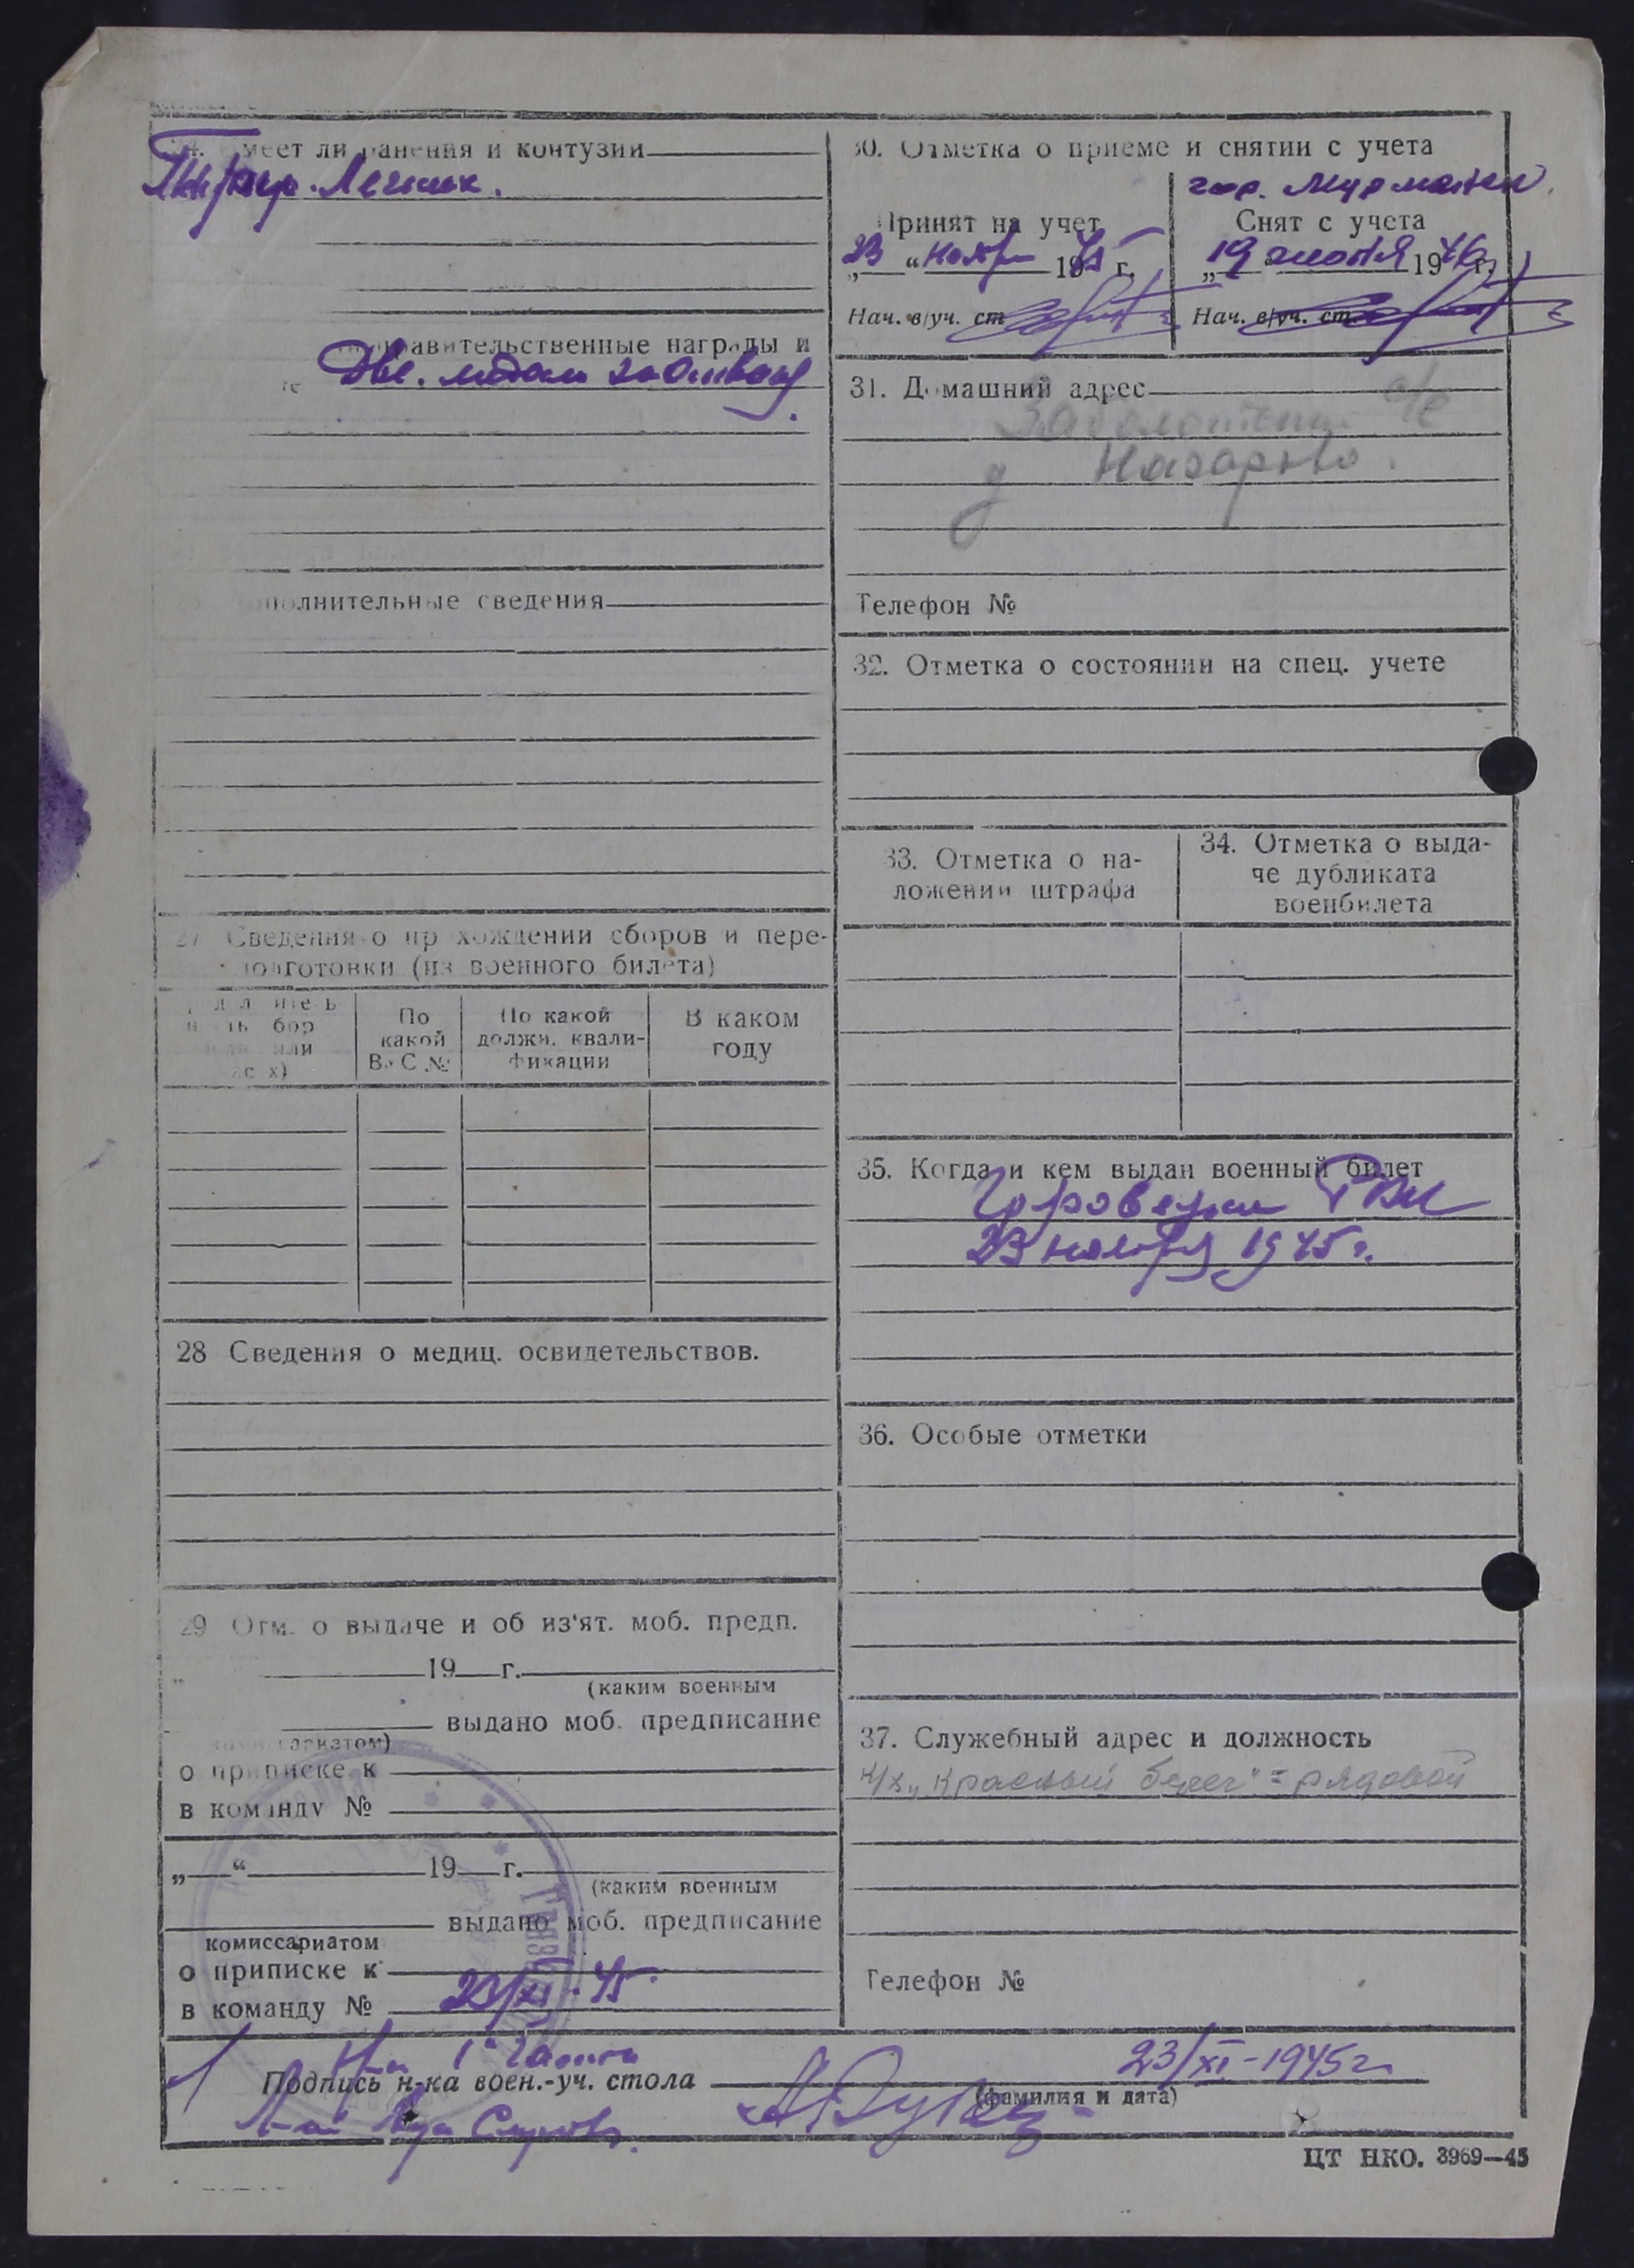 меет ли ранения и контузии
Правительственные награды и
Две. медали за
полнительные сведения
27 Сведения о пр хождении сборов и пере-
подготовки (из военного билета)
По
какой
ВУС №
По какой
должн. квали-
фикации
В каком
году
28 Сведения о медиц. освидетельствов.
29 Отм. о выдаче и об из'ят. моб. предп.
19 г.
(каким военным
выдано моб. предписание
о приписке к
в команду №
„ “ 19 г.
(каким военным
выдано моб. предписание
комиссариатом
о приписке к
в команду № 23/XI-45
30. Отметка о приеме и снятии с учета
гор. Мурманск
Принят на учет
23 “ ноября 1945 г.
Нач. в/уч. ст
Снят с учета
„19 1946 г.
Нач. в/уч. ст.
31. Домашний адрес
с/с
д Назарово.
Телефон №
32. Отметка о состоянии на спец. учете
33. Отметка о на-
ложении штрафа
34. Отметка о выда-
че дубликата
военбилета
35. Когда и кем выдан военный билет
РВК
23 ноября 1945 г.
36. Особые отметки
37. Служебный адрес и должность
к/х „Красный берег" = рядовой
Телефон №
Подпись н-ка воен.-уч. стола
23/XI-1945г
(фамилия и дата)
ЦТ НКО. 3969—45